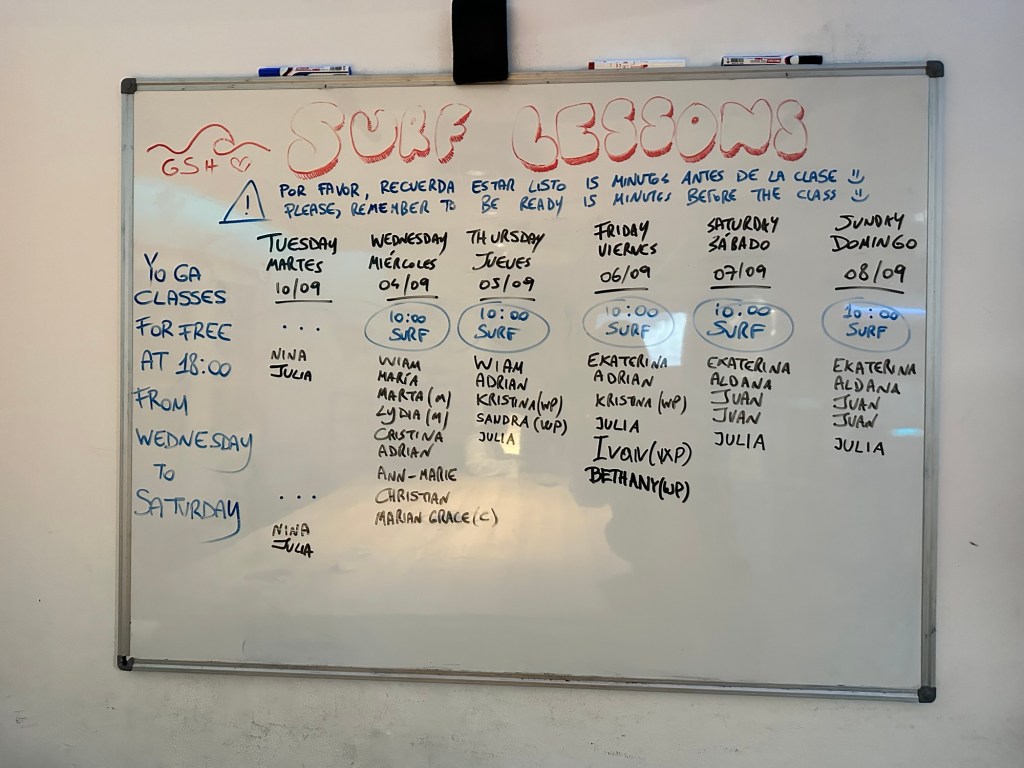 SURF LESSONS
GSH
POR FAVOR, RECUERDA ESTAR LISTO 15 MINUTOS ANTES DE LA CLASE
PLEASE, REMEMBER TO BE READY 15 MINUTES BEFORE THE CLASS
YOGA
CLASSES
FOR FREE
AT 18:00
FROM
WEDNESDAY
TO
SATURDAY
TUESDAY
MARTES
10/09
...
NINA
JULIA
...
NINA
JULIA
WEDNESDAY
MIÉRCOLES
04/09
10:00
SURF
WIAM
MARÍA
MARTA (M)
LYDIA (M)
CRISTINA
ADRIAN
ANN-MARIE
CHRISTIAN
MARIAN GRACE (C)
THURSDAY
JUEVES
05/09
10:00
SURF
WIAM
ADRIAN
KRISTINA (WP)
SANDRA (WP)
JULIA
FRIDAY
VIERNES
06/09
10:00
SURF
EKATERINA
ADRIAN
KRISTINA (WP)
JULIA
Ivan (WP)
BETHANY (WP)
SATURDAY
SÁBADO
07/09
10:00
SURF
EKATERINA
ALDANA
JUAN
JUAN
JULIA
SUNDAY
DOMINGO
08/09
10:00
SURF
EKATERINA
ALDANA
JUAN
JUAN
JULIA